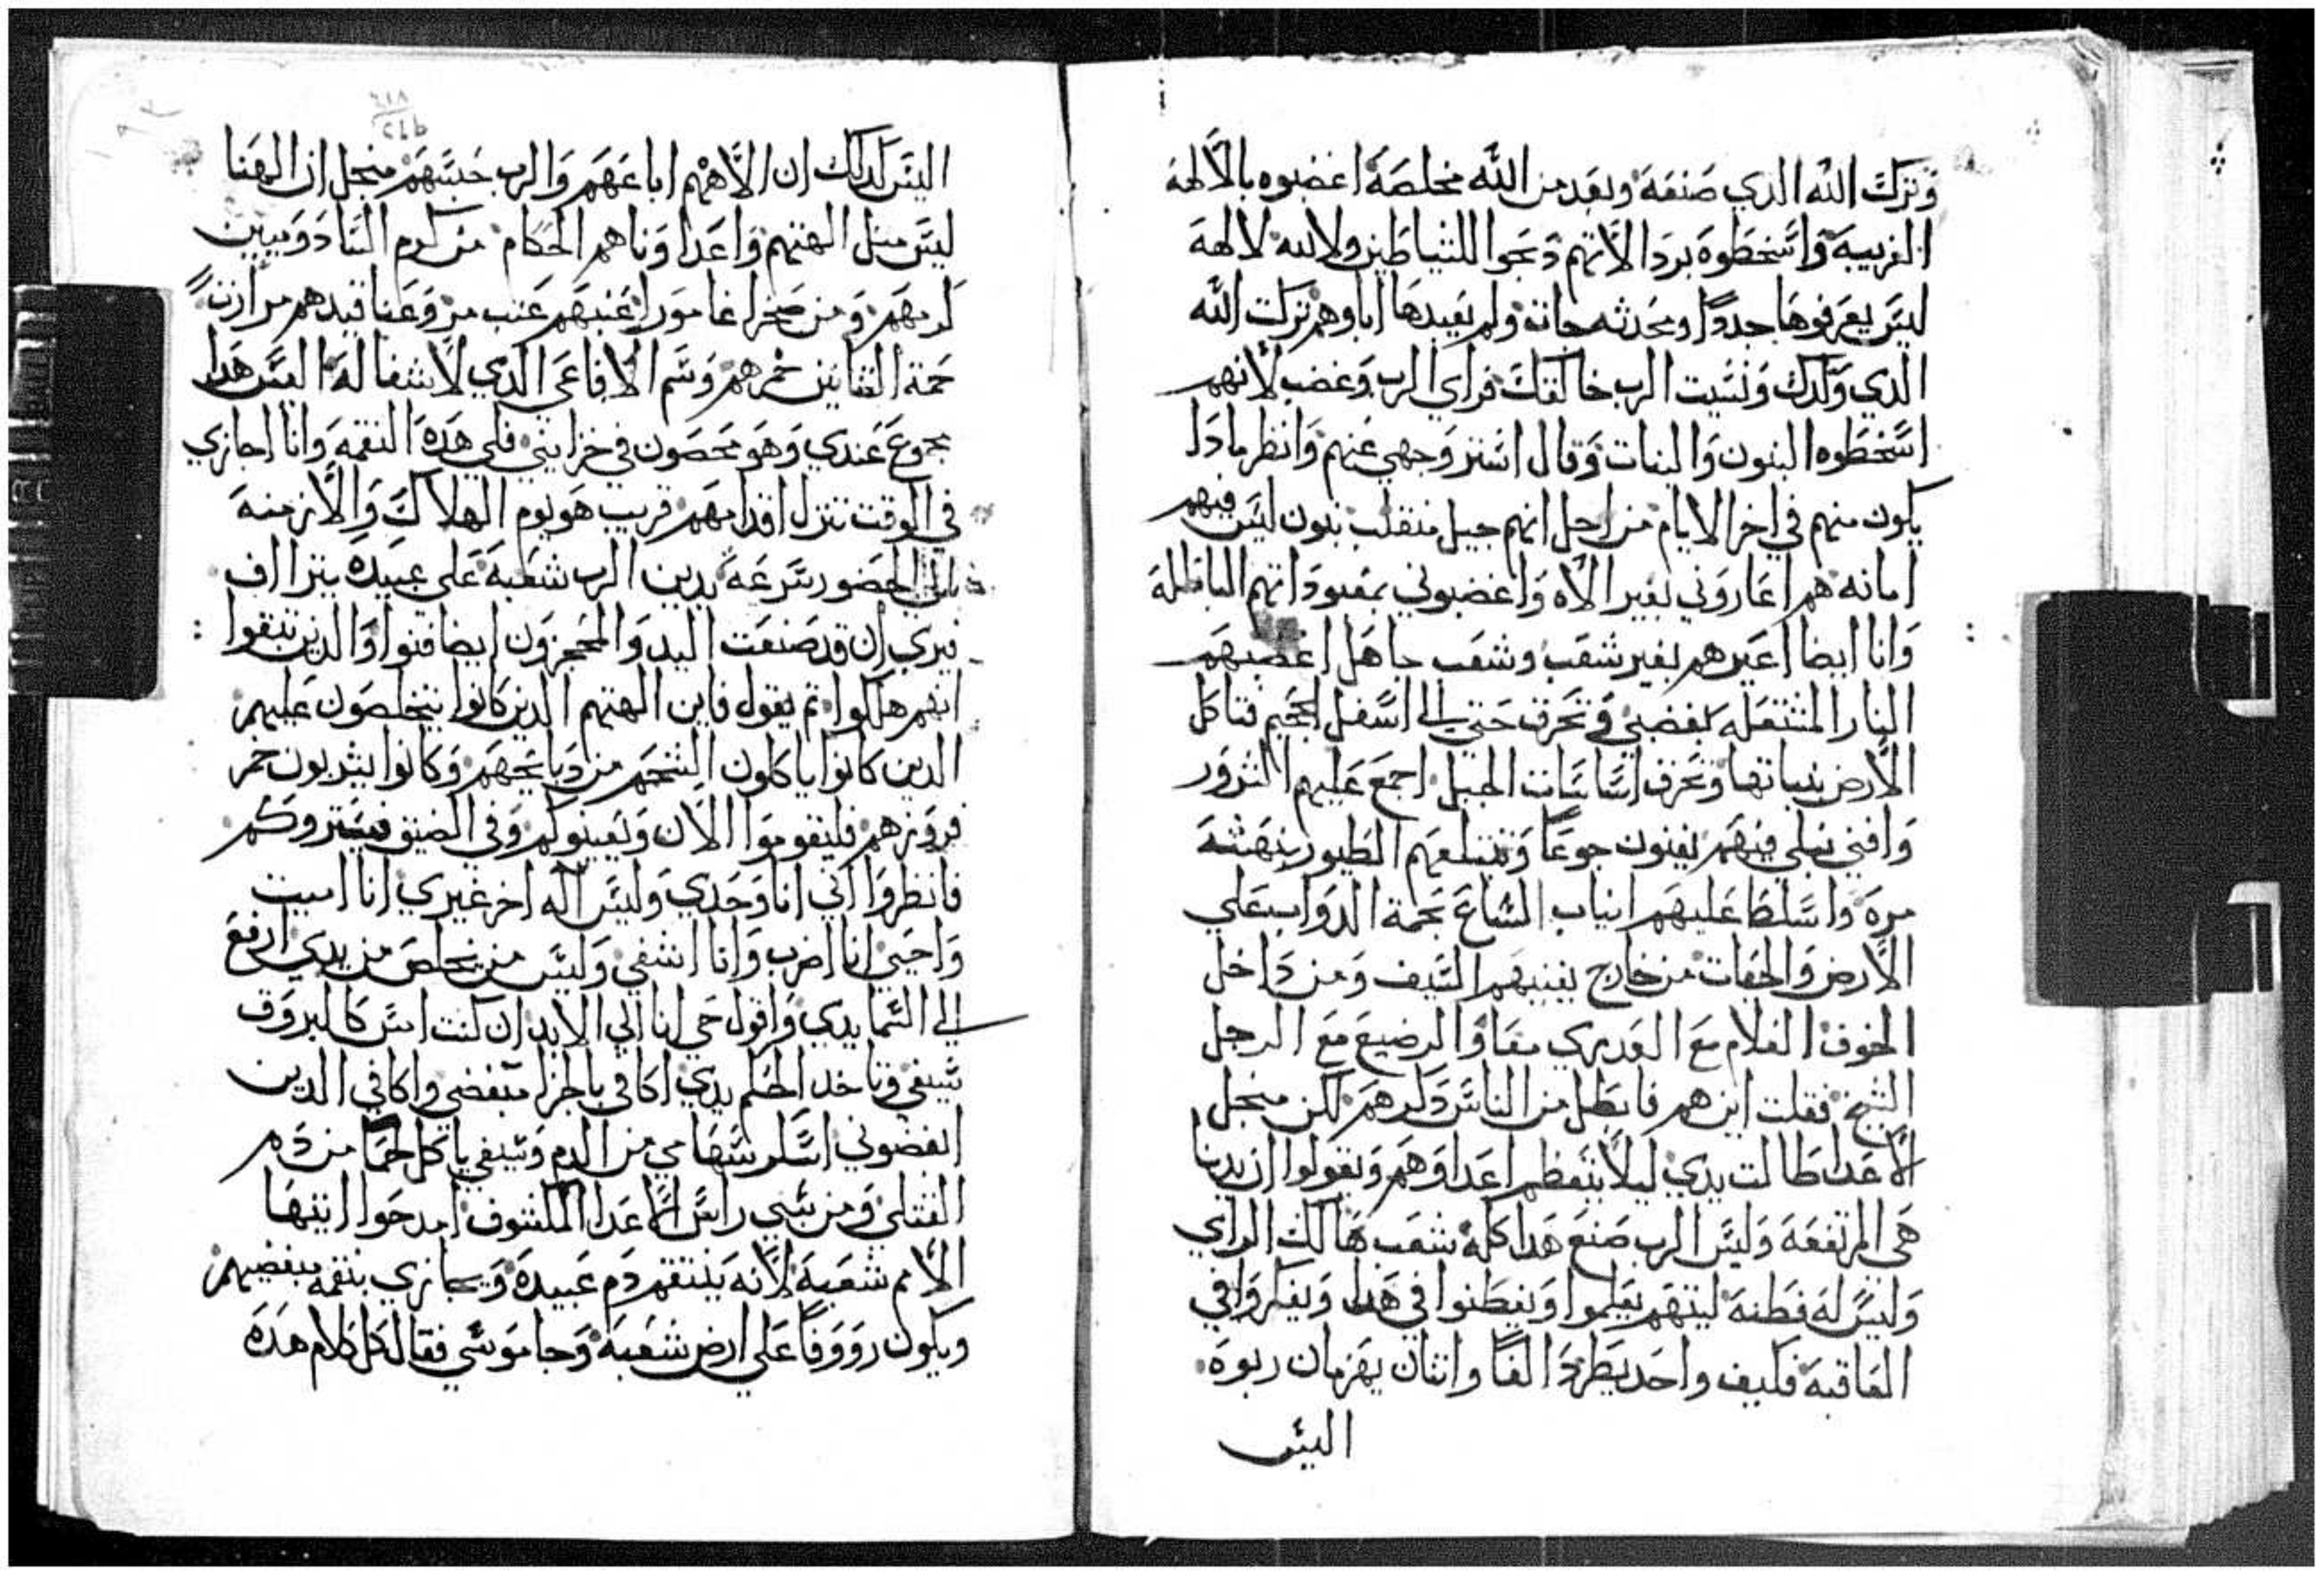 وترك الله الذي صنعه وبعد من الله مخلصه اغضبوه بالالهة
الغريبة واسخطوه برذالاتهم ذبحوا للشياطين ولا لله لالهة
ليس يعرفوها جددًا ومحدثه جات ولم يعبدها اباوهم تركت الله
الدي ولدك ونسيت الرب خالقك فراي الرب وغضب لأنهم
اسخطوه البنون والبنات وقال استر وجهي عنهم وانظر مادا
يكون منهم في اخر الايام من اجل انهم جيل منقلب بنون ليس فيهم
امانه هم اغاروني بغير الاه واغضبوني بمعبوداتهم الباطلة
وانا ايضا اغيرهم بغير شعب وشعب جاهل اغضبهم
النار المشتعله بغضبي وتحرق حتي الي اسفل الجحيم فتاكل
الأرض بنباتها وتحرق اساسات الجبل اجمع عليهم الشرور
وافني نبلي فيهم يفنون جوعًا وتبتلعهم الطيور بنهشة
مرة واسلط عليهم انياب السباع بحمة الدواب علي
الارض والحيات من خارج يفنيهم السيف ومن داخل
الخوف الغلام مع العدري معا والرضيع مع الرجل
الشيخ فقلت اين هم فابطل من الناس ذكرهم لكن منجل
الاعدا طالت يدي ليلا يتعظم اعداوهم ويقولوا ان يدنا
هي المرتفعة وليس الرب صنع هدا كله شعب هالك الراي
وليس له فطنة ليتهم يعلموا ويفطنوا في هدا ويفكروا في
العاقبة فكيف واحد يطرد الفًا واثنان يهزمان ربوة
اليس
اليس لدلك ان الاههم اباعهم والرب حبسهم منجل ان الهنا
ليس مثل الهتهم واعداونا هم الحكام من كرم السادوميين
كرمهم ومن صخرا غامورا عنبهم عنب مر وعناقيدهم مرارتاً
حمة التنانين خمرهم وسم الافاعي الدي لا شفا له اليس هدا
مجموع عندي وهو محصون في خزايني فلي هده النقمة وانا اجازي
في الوقت تنزل اقدامهم قريب هو يوم الهلاك والازمنة
الحضور سرعة يدين الرب شعبه علي عبيده يتراف
فيري ان قد ضعفت اليد والمحجزون ايضا فنوا والذين تبقوا
انهم هلكوا ثم يقول فاين الهتهم الدين كانوا يتخلصون عليهم
الدين كانوا ياكلون الشحم من دبايحهم وكانوا يشربون خمر
فروزهم فليقوموا الان ويعينوكم وفي الضيق فيستروكم
فانظروا اني انا وحدي وليس اله اخر غيري انا اميت
واحيي انا اضرب وانا اشفي وليس من يتخلص من يدي ارفع
الي السما يدي واقول حي انا الي الابد ان كنت اسن كالبروق
سيفي وتاخد الحكم يدي اكافي بالجزا مبغضي واكافي الدين
ابغضوني اسكر سهامي من الدم وسيفي ياكل لحمًا من دم
القتلي ومن سبي راس الاعدا المكشوف امدحوا ايتها
الامم شعبه لأنه ينتقم دم عبيده ويجازي بنقمه مبغضيهم
ويكون رووفًا علي ارض شعبه وجا موسي فقال كل كلام هده